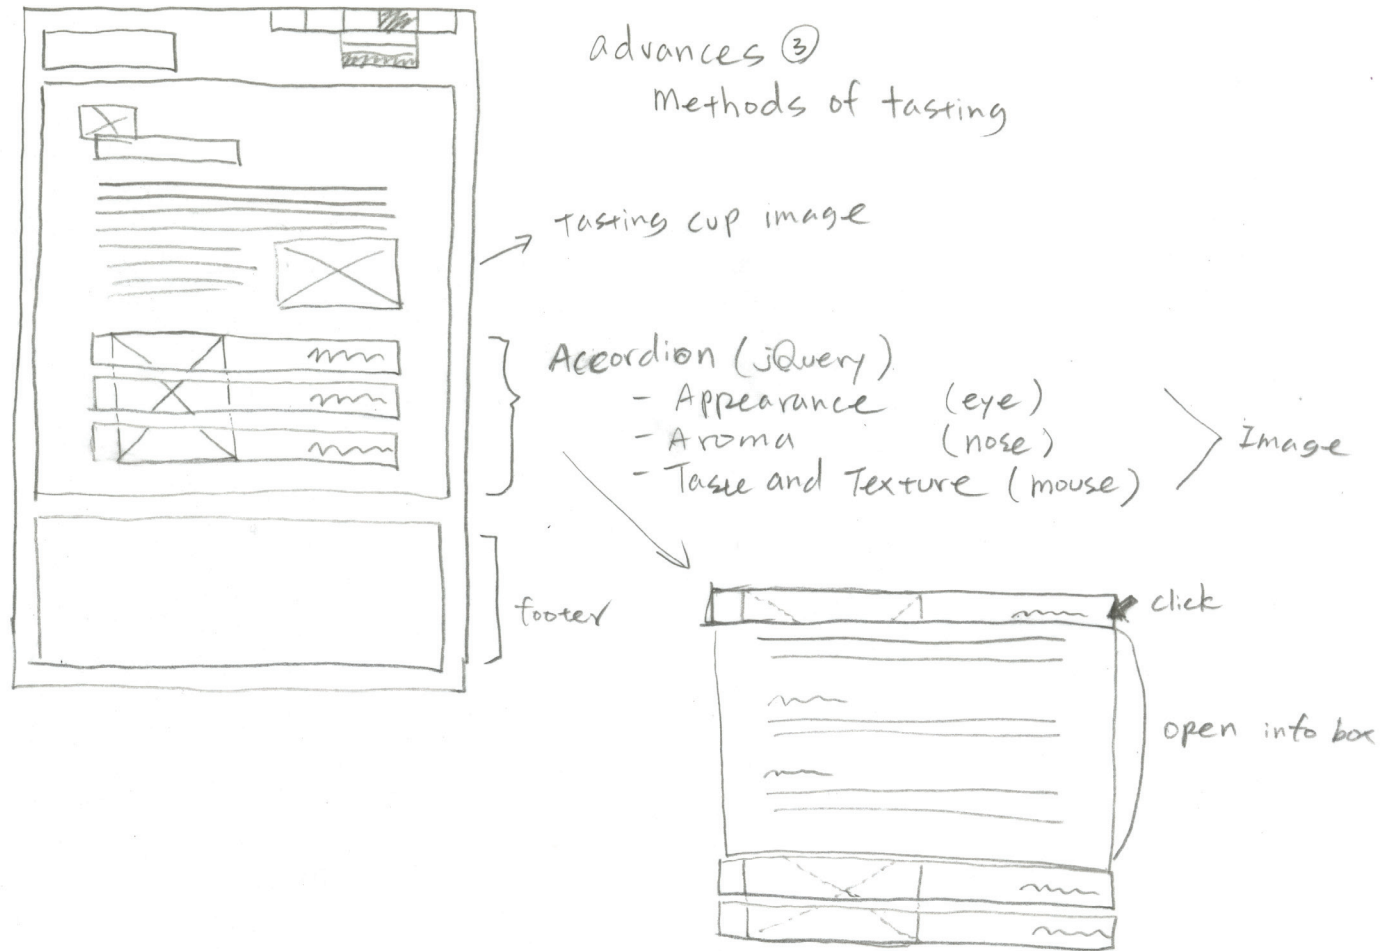 advances ③
Methods of tasting
tasting cup image
Accordion (jQuery)
- Appearance (eye)
- Aroma (nose)
- Taste and Texture (mouse)
Image
footer
click
open info box